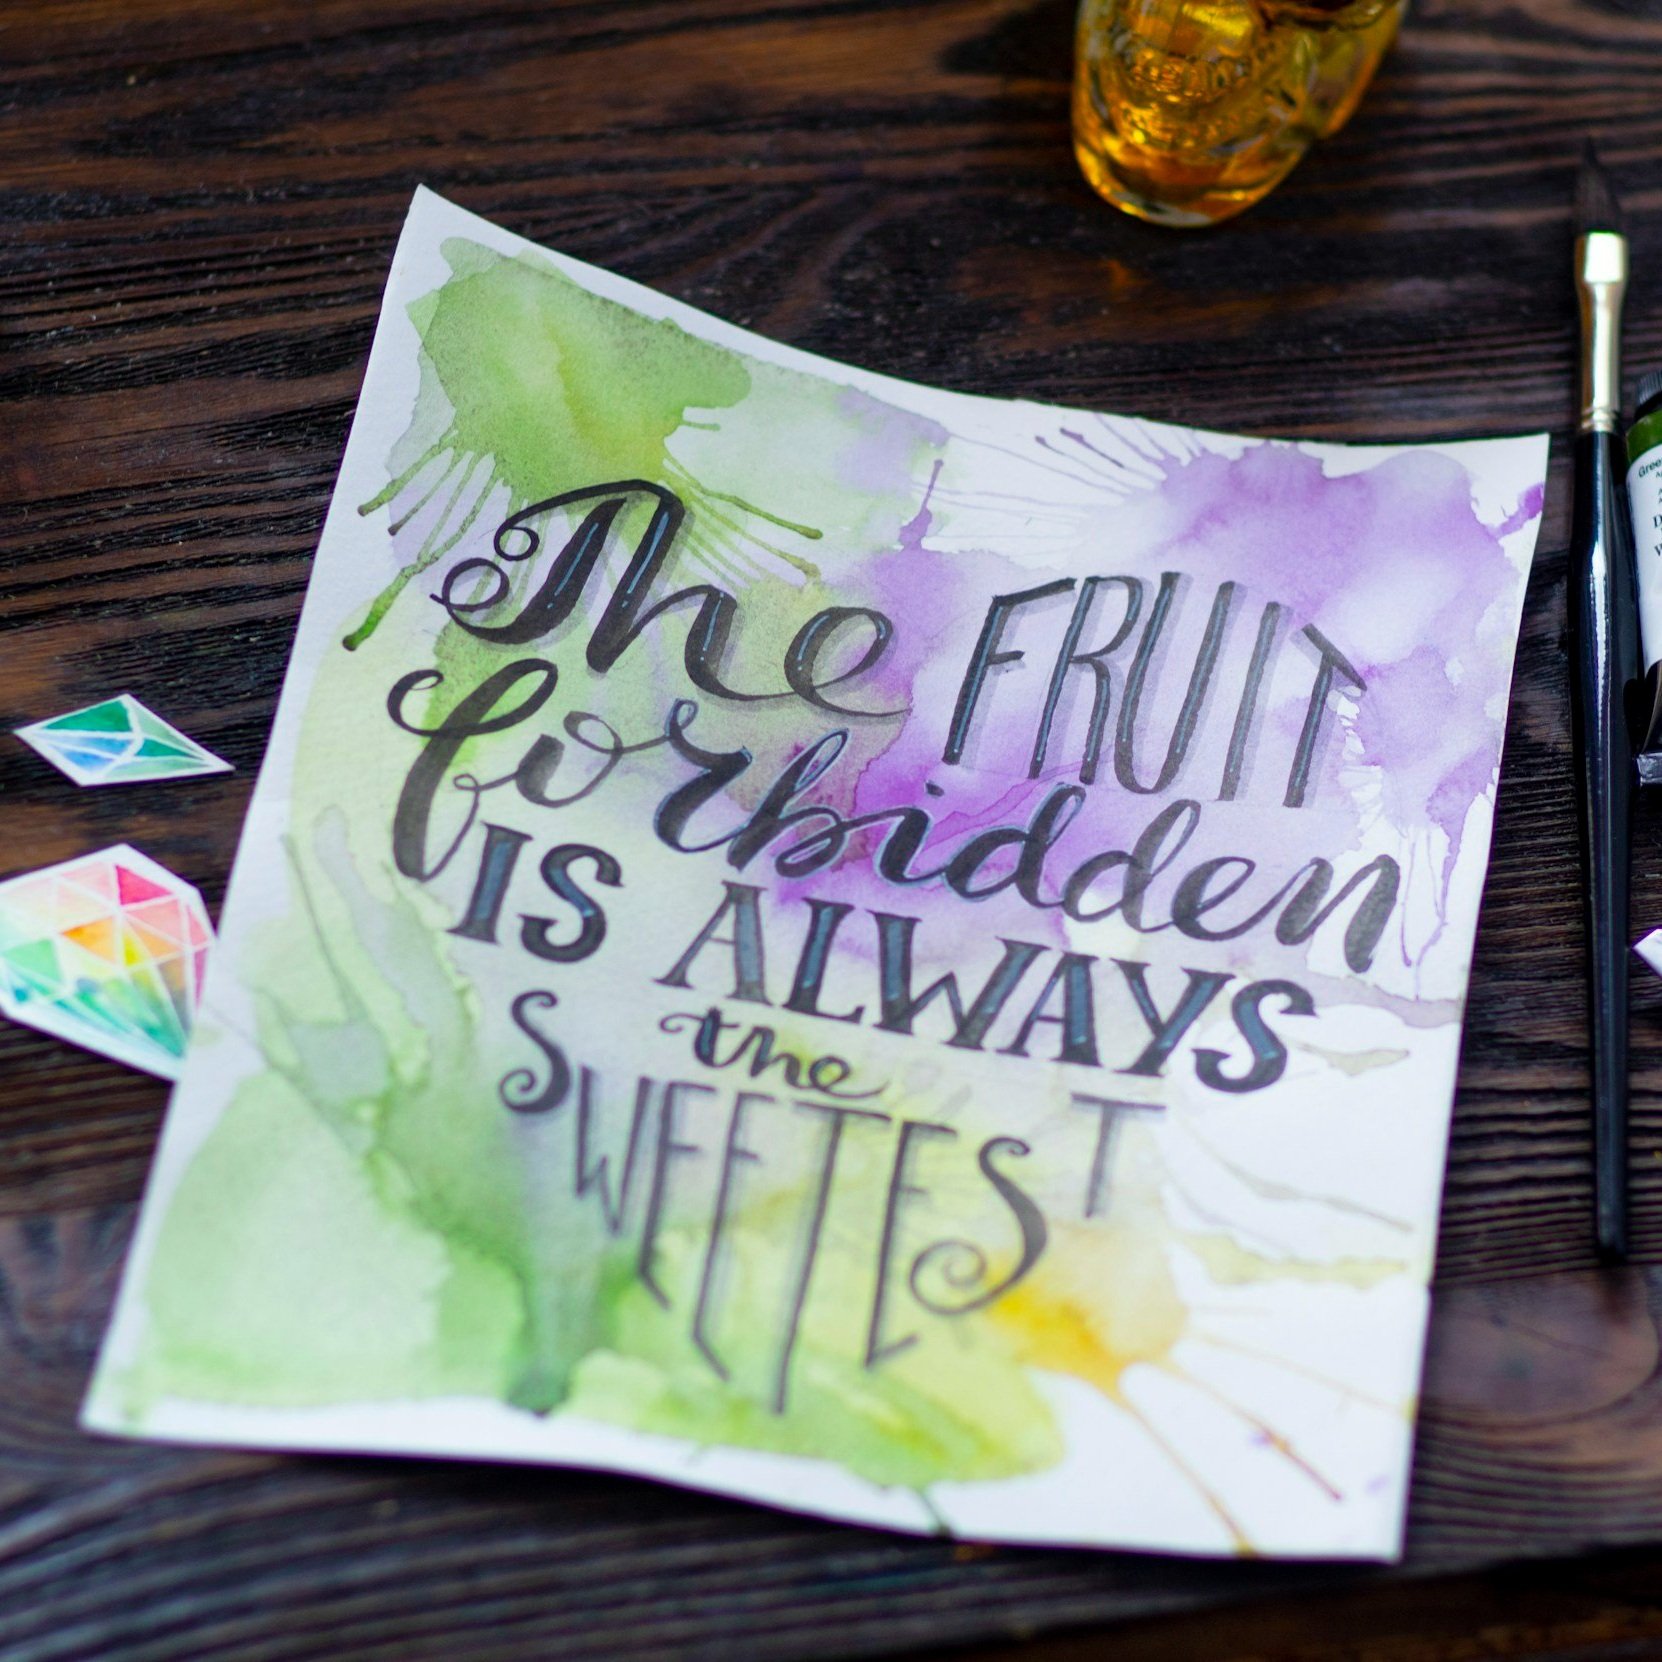 The FRUIT
forbidden
IS ALWAYS
the
SWEETEST